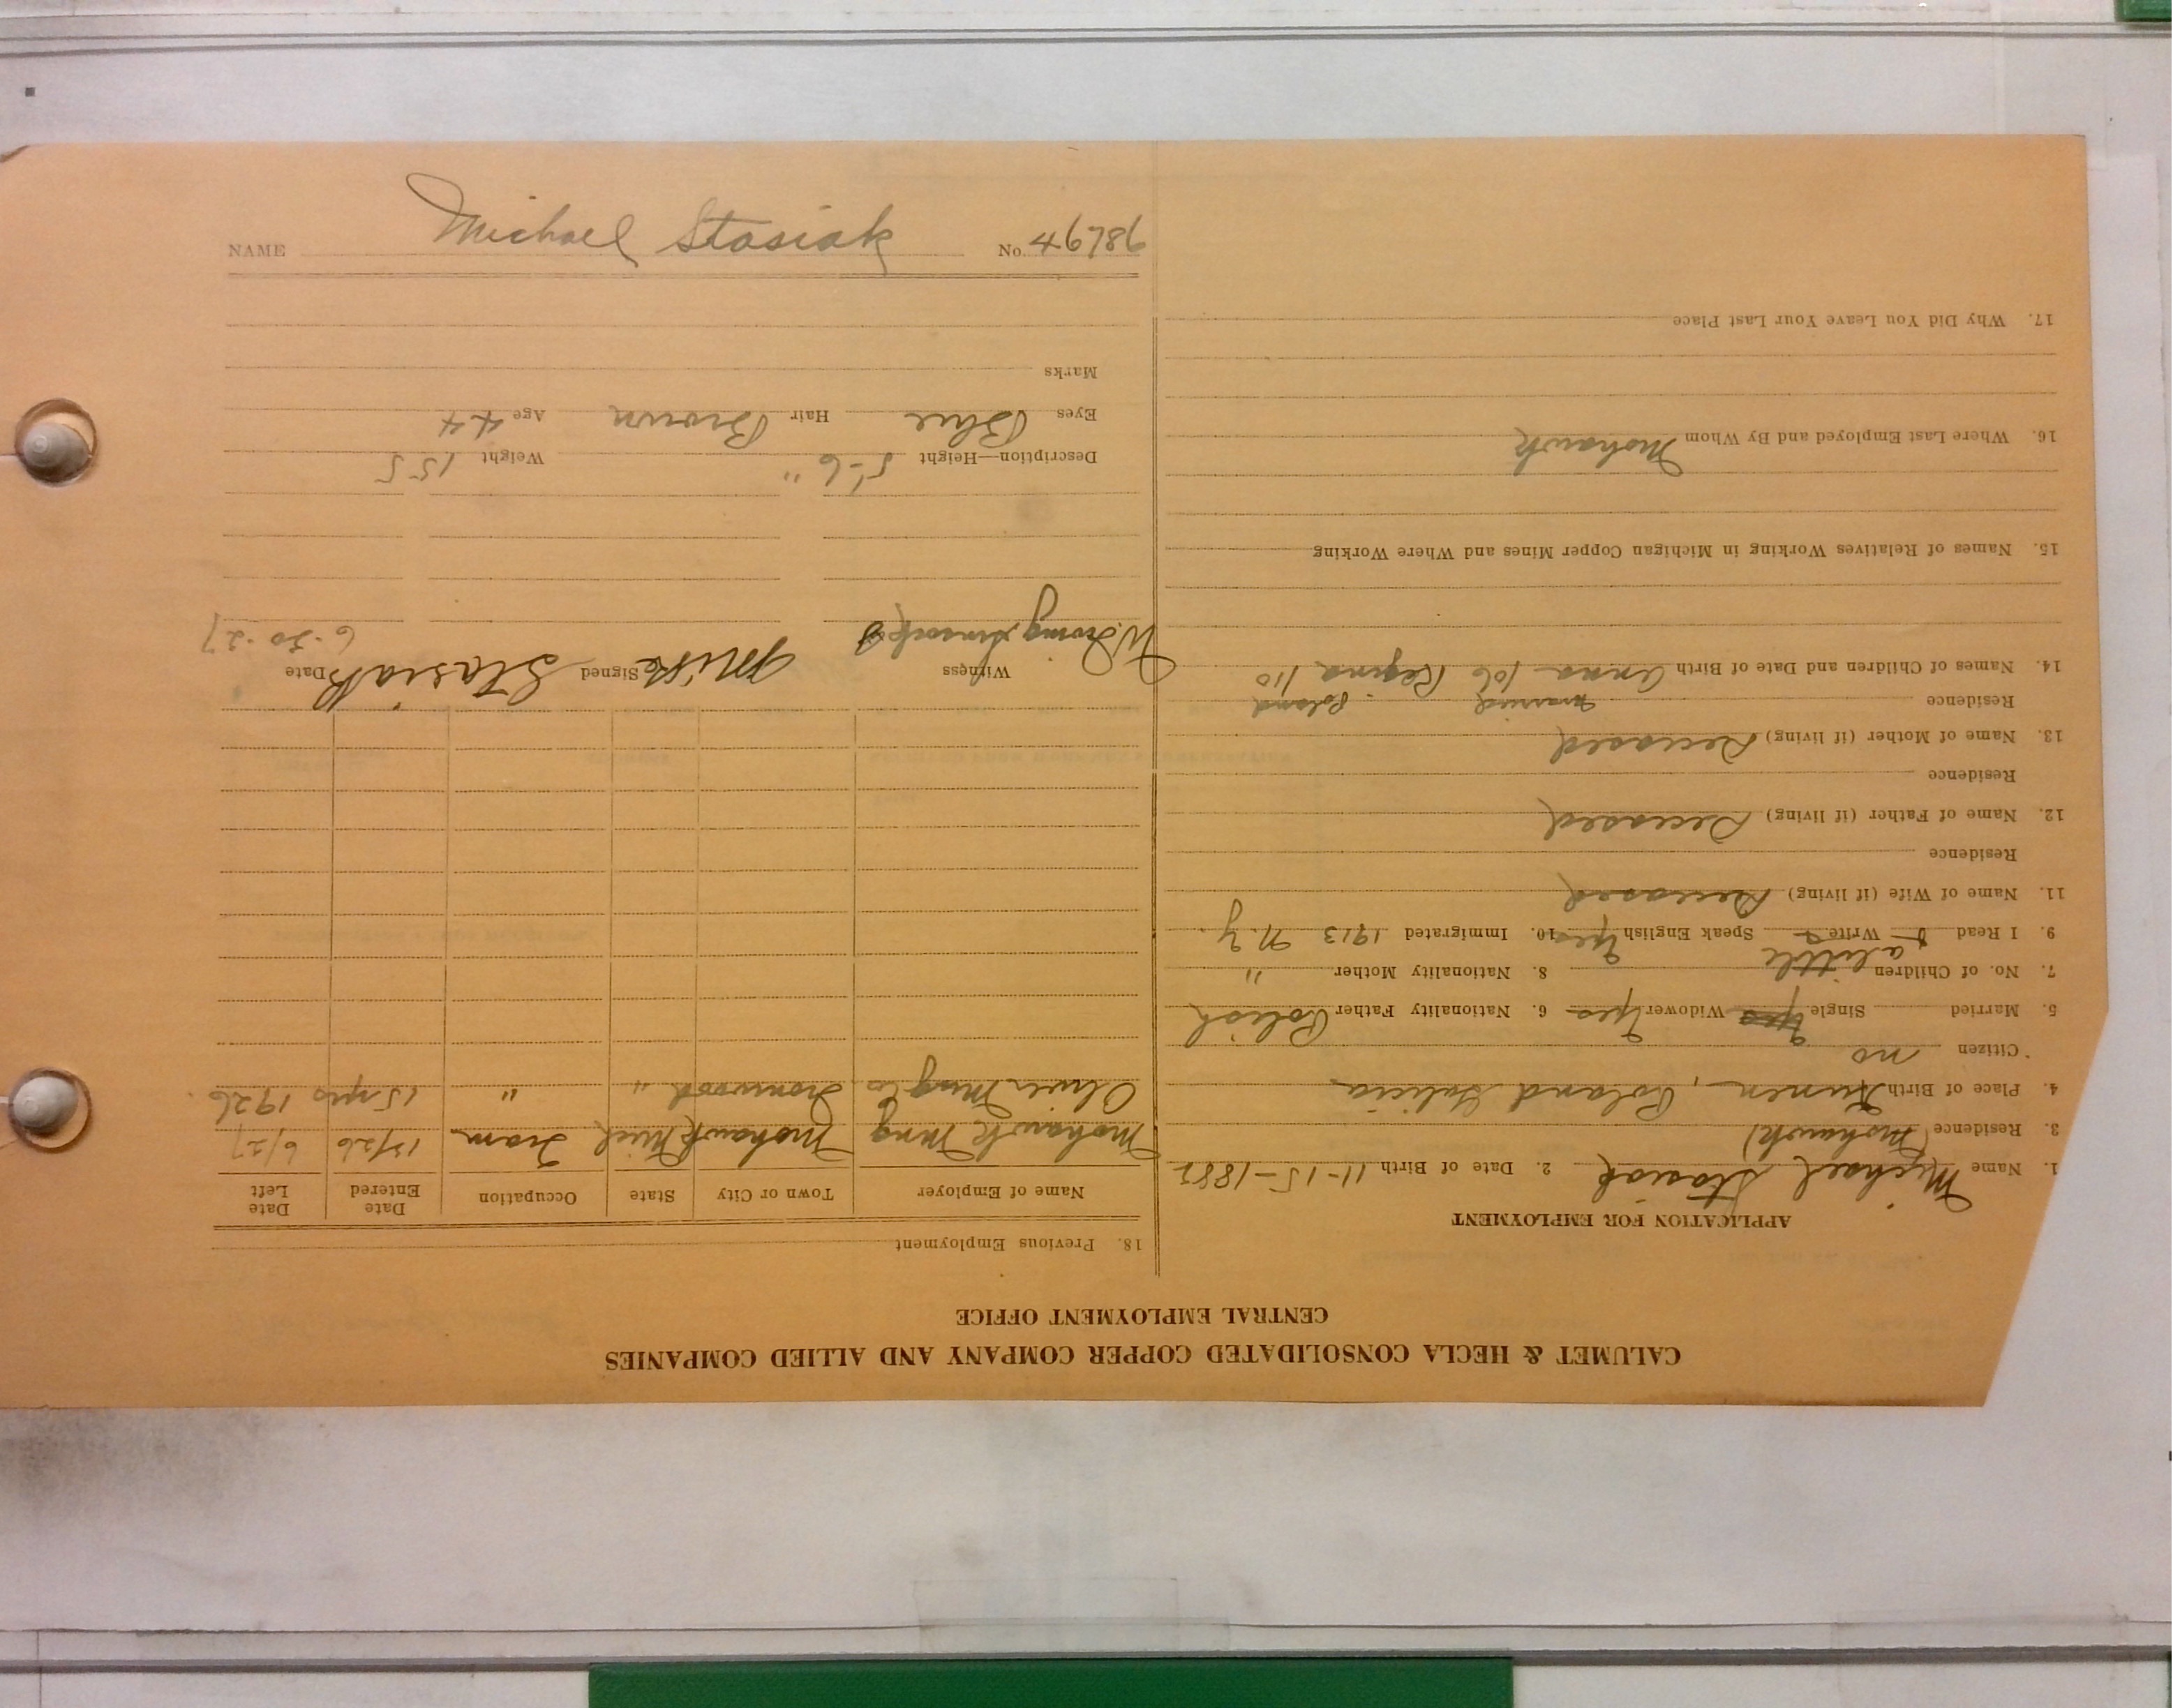 CALUMET & HECLA CONSOLIDATED COPPER COMPANY AND ALLIED COMPANIES
CENTRAL EMPLOYMENT OFFICE
APPLICATION FOR EMPLOYMENT
1. Name Michael Stasiak 2. Date of Birth 11-15-1882
3. Residence (Mohawk)
4. Place of Birth Poland Galicia
Citizen no
5. Married Single Yes Widower Yes 6. Nationality Father Polish
7. No. of Children 8. Nationality Mother "
a little
9. I Read Write Speak English Yes 10. Immigrated 1913 N.Y.
11. Name of Wife (if living) Deceased
Residence
12. Name of Father (if living) Deceased
Residence
13. Name of Mother (if living) Deceased
Residence married Poland
14. Names of Children and Date of Birth Anna 106 Regina 110
15. Names of Relatives Working in Michigan Copper Mines and Where Working
16. Where Last Employed and By Whom Mohawk
17. Why Did You Leave Your Last Place
18. Previous Employment
Name of Employer Town or City State Occupation Date Entered Date Left
Mohawk Mng Mohawk Mich Tram 12/26 6/27
Oliver Mng Co. Ironwood " " 15 yrs 1926
Witness Signed Mike Stasiak Date 6-30-27
Description—Height 5'-6" Weight 155
Eyes Blue Hair Brown Age 44
Marks
NAME Michael Stasiak No. 46786